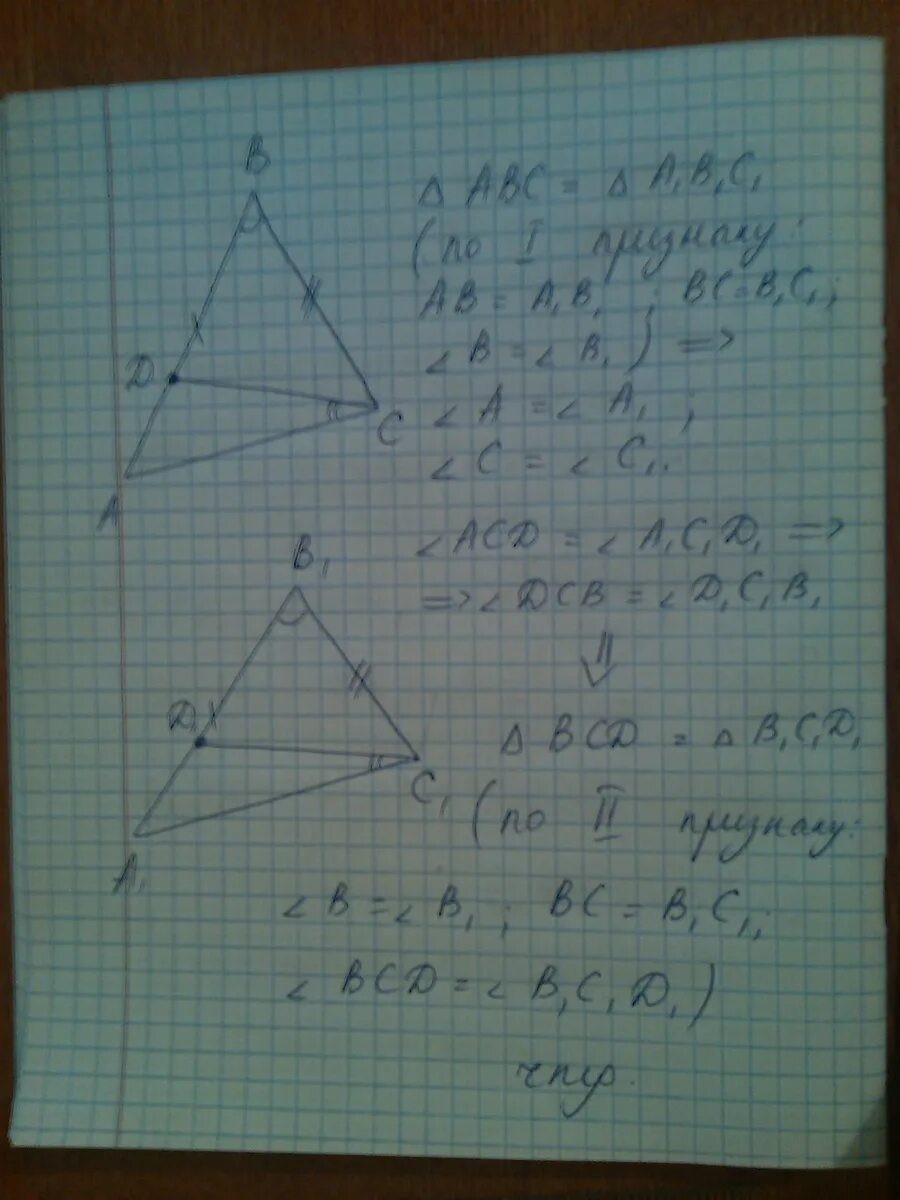 B
D
C
A
Δ ABC = Δ A₁B₁C₁
(по I признаку:
AB = A₁B₁ ; BC = B₁C₁;
∠ B = ∠ B₁) =>
∠ A = ∠ A₁ ;
∠ C = ∠ C₁.
B₁
D₁
C₁
A₁
∠ ACD = ∠ A₁C₁D₁ =>
=> ∠ DCB = ∠ D₁C₁B₁
⇓
Δ BCD = Δ B₁C₁D₁
(по II признаку:
∠ B = ∠ B₁ ; BC = B₁C₁;
∠ BCD = ∠ B₁C₁D₁)
чтд.